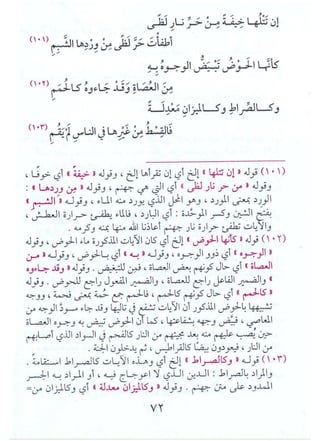 إن تَتْلُها خِيفَةً مِنْ حَرِّ نارِ لَظًى
أطفأتَ حَرَّ لَظًى مِنْ وِردِها الشَّبِمِ (١٠١)
كأنَّها الحَوْضُ تَبْيَضُّ الوجوهُ بِهِ
مِنَ العُصَاةِ وَقَدْ جَاءوهُ كالحُمَمِ (١٠٢)
وكالصِّراطِ وكالميزانِ مَعْدِلَةً
فالقِسْطُ مِنْ غَيْرِها في الناسِ لَمْ يَقُمِ (١٠٣)
(١٠١) قوله « إن تتلها » إلخ أي إن تقرأها إلخ ، وقوله « خيفة » أي خوفا ،
وقوله « من حر نار لظى » أي التي هي جهنم . وقوله « من وردها » :
الورد بمعنى المورد ، وهو المحل الذي يورد منه الماء ، وقوله « الشبم »
بفتح الشين وكسر الموحَّدة : أي البارد ، فالماء يطفئ حرارة العطش ،
والآيات تطفئ حرارة نار جهنم أعاذنا الله منها بمنه وكرمه .
(١٠٢) قوله « كأنها الحوض » إلخ أي كان الآيات المذكورة ماء الحوض ، وقوله
« الوجوه » أي ذوو الوجوه ، وقوله « به » أي بالحوض ، وقوله « من
العصاة » أي حال كونهم بعض العصاة ، فمن للتبعيض . وقوله « وقد جاءوه
» والضمير الفاعل راجع للعصاة ، والضمير المفعول راجع للحوض . وقوله
« كالحمم » أي حال كونهم كالحمم ، فالحمم جمع حُمة بمعنى فحمة ، ووجه
تشبيهها بالحوض المذكور أن الآيات تشفع في تاليها وقد جاء مسودَّ الوجه من
المعاصي ، فيبيَّض وجهه بشفاعتها ، كما أن الحوض تبيض به وجوه العصاة
حين يُصب عليهم منه بعد مجيئهم من النار كالفحم من السواد الذي أصابهم
من النار ، فيعودون بيضًا كالقراطيس ، ثم يدخلون الجنة .
(١٠٣) قوله « وكالصراط » إلخ أي وهذه الآيات كالصراط استقامة .
والمراد بالصراط : الدين الذي لا اعوجاج فيه ، أو المراد به الجسر
الممدود على متن جهنم . وقوله « وكالميزان معدلة » أي وكالميزان من=
٧٢